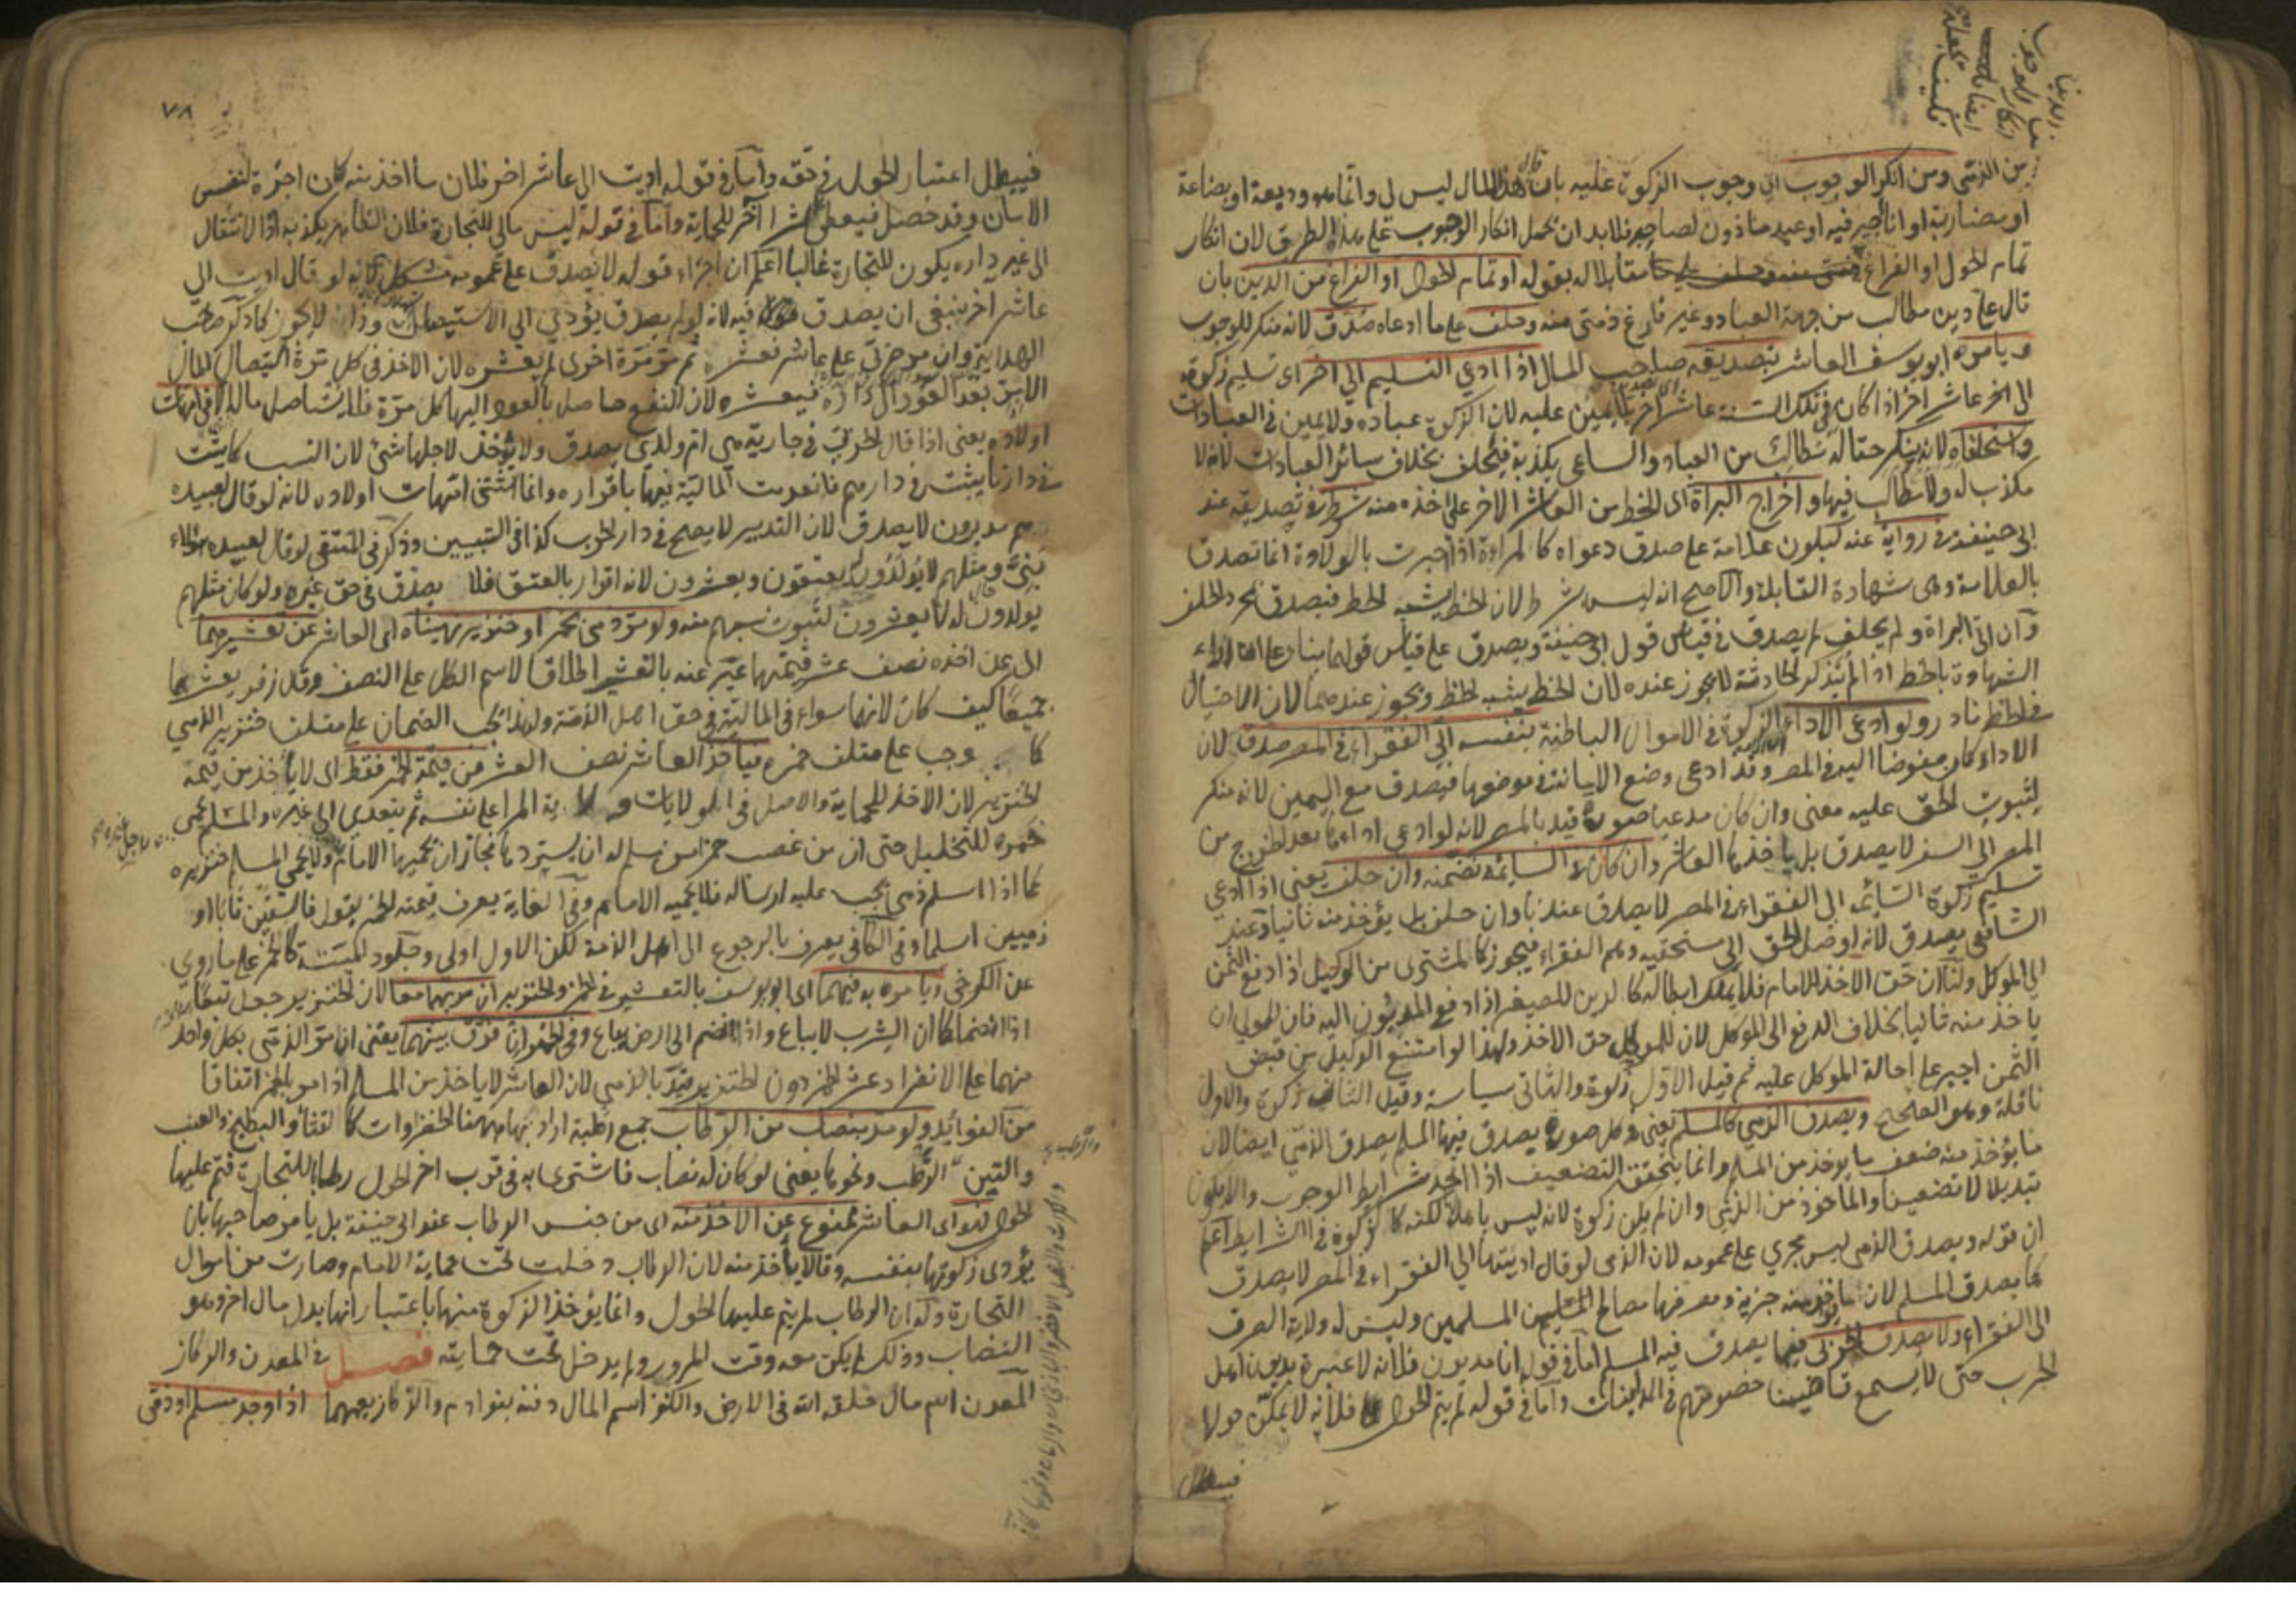 من الذمي ومن انكر الوجوب اي وجوب الزكوة عليه بان قال هذا المال ليس لي وانما هو وديعة او بضاعة
او مضاربة او انا اجير فيه او عبد ماذون لصاحبه فلا بد ان يحمل انكار الوجوب على هذا الطريق لان انكار
تمام الحول او الفراغ مقابلا له بقوله او تمام الحول او الفراغ من الدين بان
قال علي دين مطالب من جهة العباد وغير فارغ ذمتي منه وحلف على ما ادعاه صدق لانه منكر للوجوب
ويامره ابو يوسف العاشر بتصديقه صاحب المال اذا ادعى التسليم الى اخر اي تسليم زكوته
الى اخر عاشر اخر اذا كان في تلك السنة عاشر اخر بلا يمين عليه لان الزكوة عبادة ولا يمين في العبادات
واستحلفاه لانه ينكر حقا له مطالب من العباد والساعي يكذبه فيحلف بخلاف سائر العبادات لانه لا
مكذب له ولا مطالب فيها واخراج البراة اي الخط من العاشر الاخر على اخذه منه شرط في تصديقه عند
ابي حنيفة في رواية عنه ليكون علامة على صدق دعواه كالمراة اذا اخبرت بالولادة انما تصدق
بالعلامة وهي شهادة القابلة والاصح انه ليس شرطا لان الخط يشبه الخط فيصدق بمجرد الحلف
وان اتى البراة ولم يحلف لم يصدق في قياس قول ابي حنيفة ويصدق على قياس قولهما بناء على ان اداء
الشهادة بالخط اذا لم يتذكر الحادثة لا يجوز عنده لان الخط يشبه الخط ويجوز عندهما لان الاحتيال
في الخط نادر ولو ادعى الاداء اي اداء الزكوة في الاموال الباطنة بنفسه الى الفقراء في المصر صدق لان
الاداء كان مفوضا اليه في المصر وقد ادعى وضع الامانة في موضعها فيصدق مع اليمين لانه منكر
لثبوت الحق عليه معنى وان كان مدعيا صورة قيد بالمصر لانه لو ادعى اداءها بعد الخروج من
المصر الى السفر لا يصدق بل ياخذها العاشر وان كان في السائمة تضمنه وان حلف يعني اذا ادعى
تسليم زكوة السائمة الى الفقراء في المصر لا يصدق عندنا وان حلف بل يؤخذ منه ثانيا وعند
الشافعي يصدق لانه اوصل الحق الى مستحقيه وهم الفقراء فيجوز كالمشتري من الوكيل اذا دفع الثمن
الى الموكل ولنا ان حق الاخذ للامام فلا يملك ابطاله كالدين للصغير اذا دفع المديون اليه فان للولي ان
ياخذ منه ثانيا بخلاف الدفع الى الموكل لان للموكل حق الاخذ ولهذا لو امتنع الوكيل من قبض
الثمن اجبر على احالة الموكل عليه ثم قيل الاول زكوة والثاني سياسة وقيل الثاني زكوة والاول
نافلة وهو الصحيح ويصدق الذمي كالمسلم يعني في كل صورة يصدق فيها المسلم يصدق الذمي ايضا لان
ما يؤخذ منه ضعف ما يؤخذ من المسلم وانما يتحقق التضعيف اذا اتحد شرايط الوجوب والا يكون
تبديلا لا تضعيفا والماخوذ من الذمي وان لم يكن زكوة لانه ليس باهلها لكنه كالزكوة في الشرايط اعلم
ان قوله ويصدق الذمي ليس يجري على عمومه لان الذمي لو قال اديتها الى الفقراء في المصر لا يصدق
كما يصدق المسلم لان ما يؤخذ منه جزية ومصرفها مصالح المسلمين وليس له ولاية الصرف
الى الفقراء ولا يصدق الحربي فيما يصدق فيه المسلم اما في قوله انا مديون فلانه لا عبرة بديون اهل
الحرب حتى لا يسمع قاضينا خصومتهم في المداينات واما في قوله لم يتم الحول فلانه لا يمكن حولا
فيبطل
٧٨
فيبطل اعتبار الحول في حقه واما في قوله اديت الى عاشر اخر فلان ما اخذ منه كان اجرة لنفس
الامان وقد حصل فيعطى عشرا اخر للحماية واما في قوله ليس مالي للتجارة فلان الظاهر يكذبه اذ الانتقال
الى غير داره يكون للتجارة غالبا اعلم ان اجراء قوله لا يصدق على عمومه مشكل لانه لو قال اديت الى
عاشر اخر ينبغي ان يصدق فيه لانه لو لم يصدق يؤدي الى الاستيصال وذا لا يجوز كما ذكر صاحب
الهداية وان مر حربي على عاشر فعشره ثم مر مرة اخرى لم يعشره لان الاخذ في كل مرة استيصال المال
الا من بعد العود الى داره فيعشره لان النفع حاصل بالعود اليها كل مرة فلا يستاصل ماله الا في امهات
اولاده يعني اذا قال الحربي في جارية هي ام ولدي يصدق ولا يؤخذ لاجلها شئ لان النسب كما يثبت
في دارنا يثبت في دارهم فانعدمت المالية فيها باقراره وانما استثنى امهات اولاده لانه لو قال لعبيده
هم مدبرون لا يصدق لان التدبير لا يصح في دار الحرب كذا في التبيين وذكر في المنتقى لو قال لعبيده هؤلاء
بني ومثلهم لا يولدون له يعتقون ويعشرون لانه اقرار بالعتق فلا يصدق في حق غيره ولو كان مثلهم
يولدون له لا يعشرون لثبوت نسبهم منه ولو مر ذمي بخمر او خنزير نهيناه اي العاشر عن تعشيرهما
اي عن اخذه نصف عشر قيمتهما عبر عنه بالتعشير اطلاقا لاسم الكل على النصف وقال زفر يعشرهما
جميعا كيف كان لانهما سواء في المالية في حق اهل الذمة ولهذا يجب الضمان على متلف خنزير الذمي
كما وجب على متلف خمره فياخذ العاشر نصف العشر من قيمة الخمر فقط اي لا ياخذ من قيمة
الخنزير لان الاخذ للحماية والاصل في الولايات ولاية المرا على نفسه ثم يتعدى الى غيره والمسلم يحمي
خمره للتخليل حتى ان من غصب خمرا من مسلم له ان يستردها فجاز ان يحميها الامام ولا يحمي المسلم خنزيره
كما اذا اسلم ذمي يجب عليه ارساله فلا يحميه الامام وفي الغاية يعرف قيمة الخمر بقول فاسقين تابا او
ذميين اسلما وفي الكافي يعرف بالرجوع الى اهل الذمة لكن الاول اولى وجلود الميتة كالخمر على ما روي
عن الكرخي ويامره به فيهما اي ابو يوسف بالتعشير في الخمر والخنزير ان مر بهما معا لان الخنزير جعل تبعا
اذا انضما كما ان الشرب لا يباع واذا انضم الى ارض يباع وفرق بينهما يعني ان مر الذمي بكل واحد
منهما على الانفراد عشر الخمر دون الخنزير قيد بالذمي لان العاشر لا ياخذ من المسلم اذا مر بالخمر اتفاقا
من الفوائد ولو مر بنصاب من الرطاب جمع رطبة اراد بها ههنا الخضراوات كالقثاء والبطيخ والعنب
والتين الرطب ونحوها يعني لو كان له نصاب فاشترى به في قرب اخر الحول رطابا للتجارة فتم عليها
الحول فهو اي العاشر ممنوع عن الاخذ منه اي من جنس الرطاب عند ابي حنيفة بل يامر صاحبها بان
يؤدي زكوتها بنفسه وقالا ياخذ منه لان الرطاب دخلت تحت حماية الامام وصارت من اموال
التجارة وله ان الرطاب لم يتم عليها الحول وانما يؤخذ الزكوة منها باعتبار انها بدل مال اخر وهو
النصاب وذلك لم يكن معه وقت المرور ولم يدخل تحت حمايته فصل في المعدن والركاز
المعدن اسم مال خلقه الله في الارض والكنز اسم المال دفنه بنو ادم والركاز يعمهما اذا وجد مسلم او ذمي